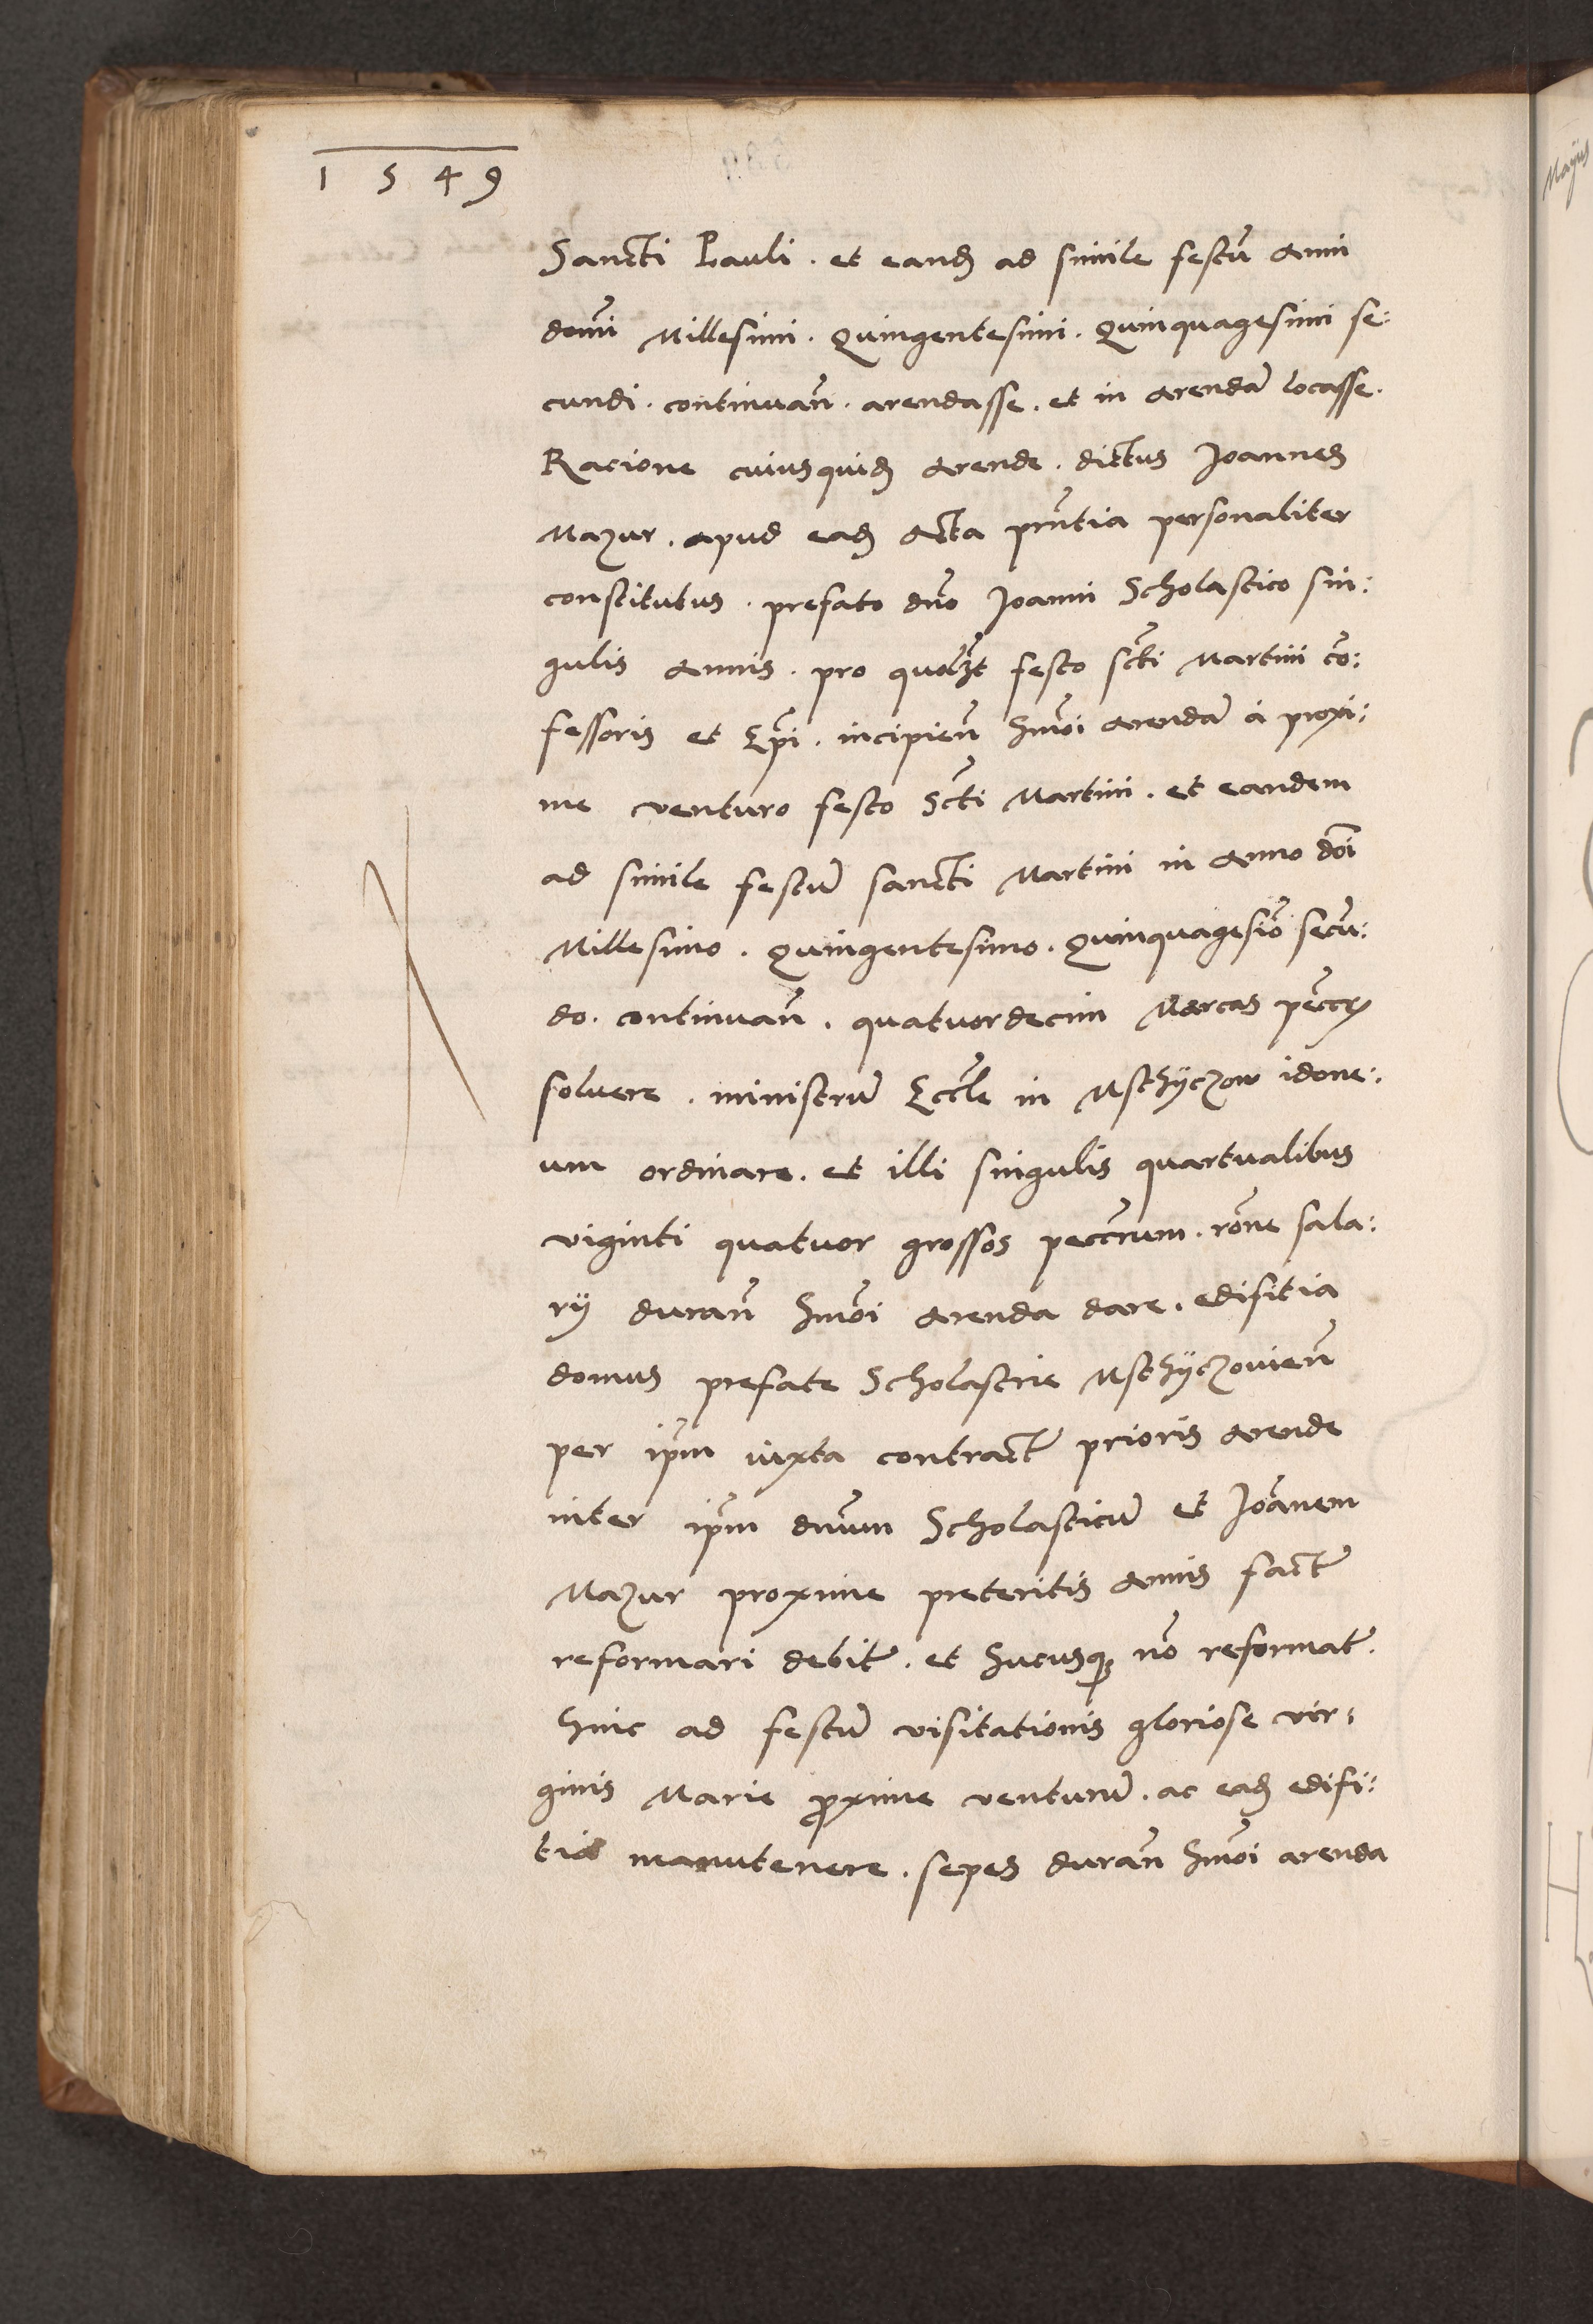 1549
Sancti Pauli . et eand ad simile festu anni
domi Millesimi . Quingentesimi . Quinquagesimi se:
cundi . continuan . arendasse . et in arenda locasse .
Racione cuiusquid arende . dictus Joannes
Mazur . apud ead acta pntia personaliter
constitutus . prefato dno Joanni Scholastico sin:
gulis annis . pro quolzt festo scti Martini co:
fessoris et Epi . incipien hmoi arenda a proxi:
me venturo festo Scti Martini . et eandem
ad simile festu sancti Martini in anno doi
Millesimo . Quingentesimo . Quinquagesio secu:
do . continuan . quatuordecim Marcas
soluere . ministru Eccle in Msthyczow idone:
um ordinare . et illi singulis quartualibus
viginti quatuor grossos peccnrum . rone sala:
rij duran hmoi arenda dare . edifitia
domus prefate Scholastrie Msthyczowien
per ipm iuxta contract prioris arende
inter ipm dnum Scholasticu et Joanem
Mazur proxime preteritis annis fact
reformari debit . et hucusq no reformat .
hinc ad festu visitationis gloriose vir:
ginis Marie proxime venturu . ac ead edifi:
tia manutenere . sepes duran hmoi arenda
Maijus